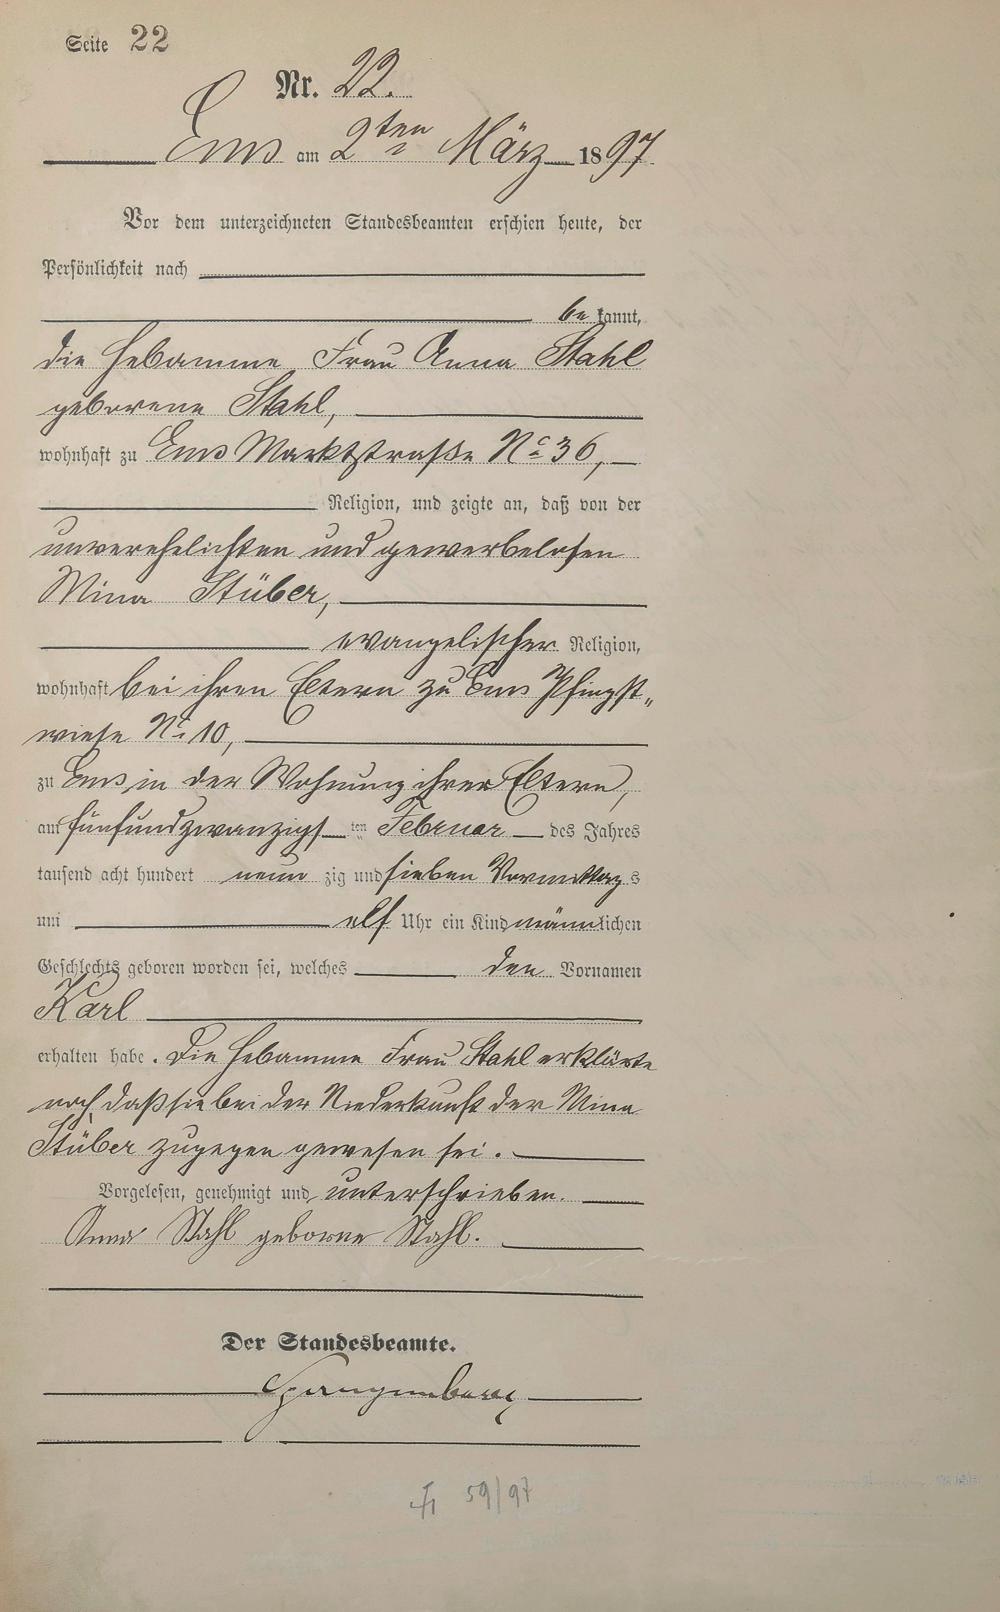 Seite 22
Nr. 22.
Ems am 2ten März 1897.
Vor dem unterzeichneten Standesbeamten erschien heute, der
Persönlichkeit nach
bekannt,
die Hebamme Frau Anna Stahl
geborene Stahl,
wohnhaft zu Ems Marktstraße No 36,
Religion, und zeigte an, daß von der
unverehelichten und gewerbelosen
Mina Stüber,
evangelischer Religion,
wohnhaft bei ihren Eltern zu Ems Pfingst„
wiese No 10,
zu Ems in der Wohnung ihrer Eltern,
am fünfundzwanzigsten Februar des Jahres
tausend acht hundert neunzig und sieben Vormittags
um elf Uhr ein Kind männlichen
Geschlechts geboren worden sei, welches den Vornamen
Karl
erhalten habe. Die Hebamme Frau Stahl erklärte
noch, daß sie bei der Niederkunft der Mina
Stüber zugegen gewesen sei.
Vorgelesen, genehmigt und unterschrieben.
Anna Stahl geborne Stahl.
Der Standesbeamte.
Spangenberg
59/97